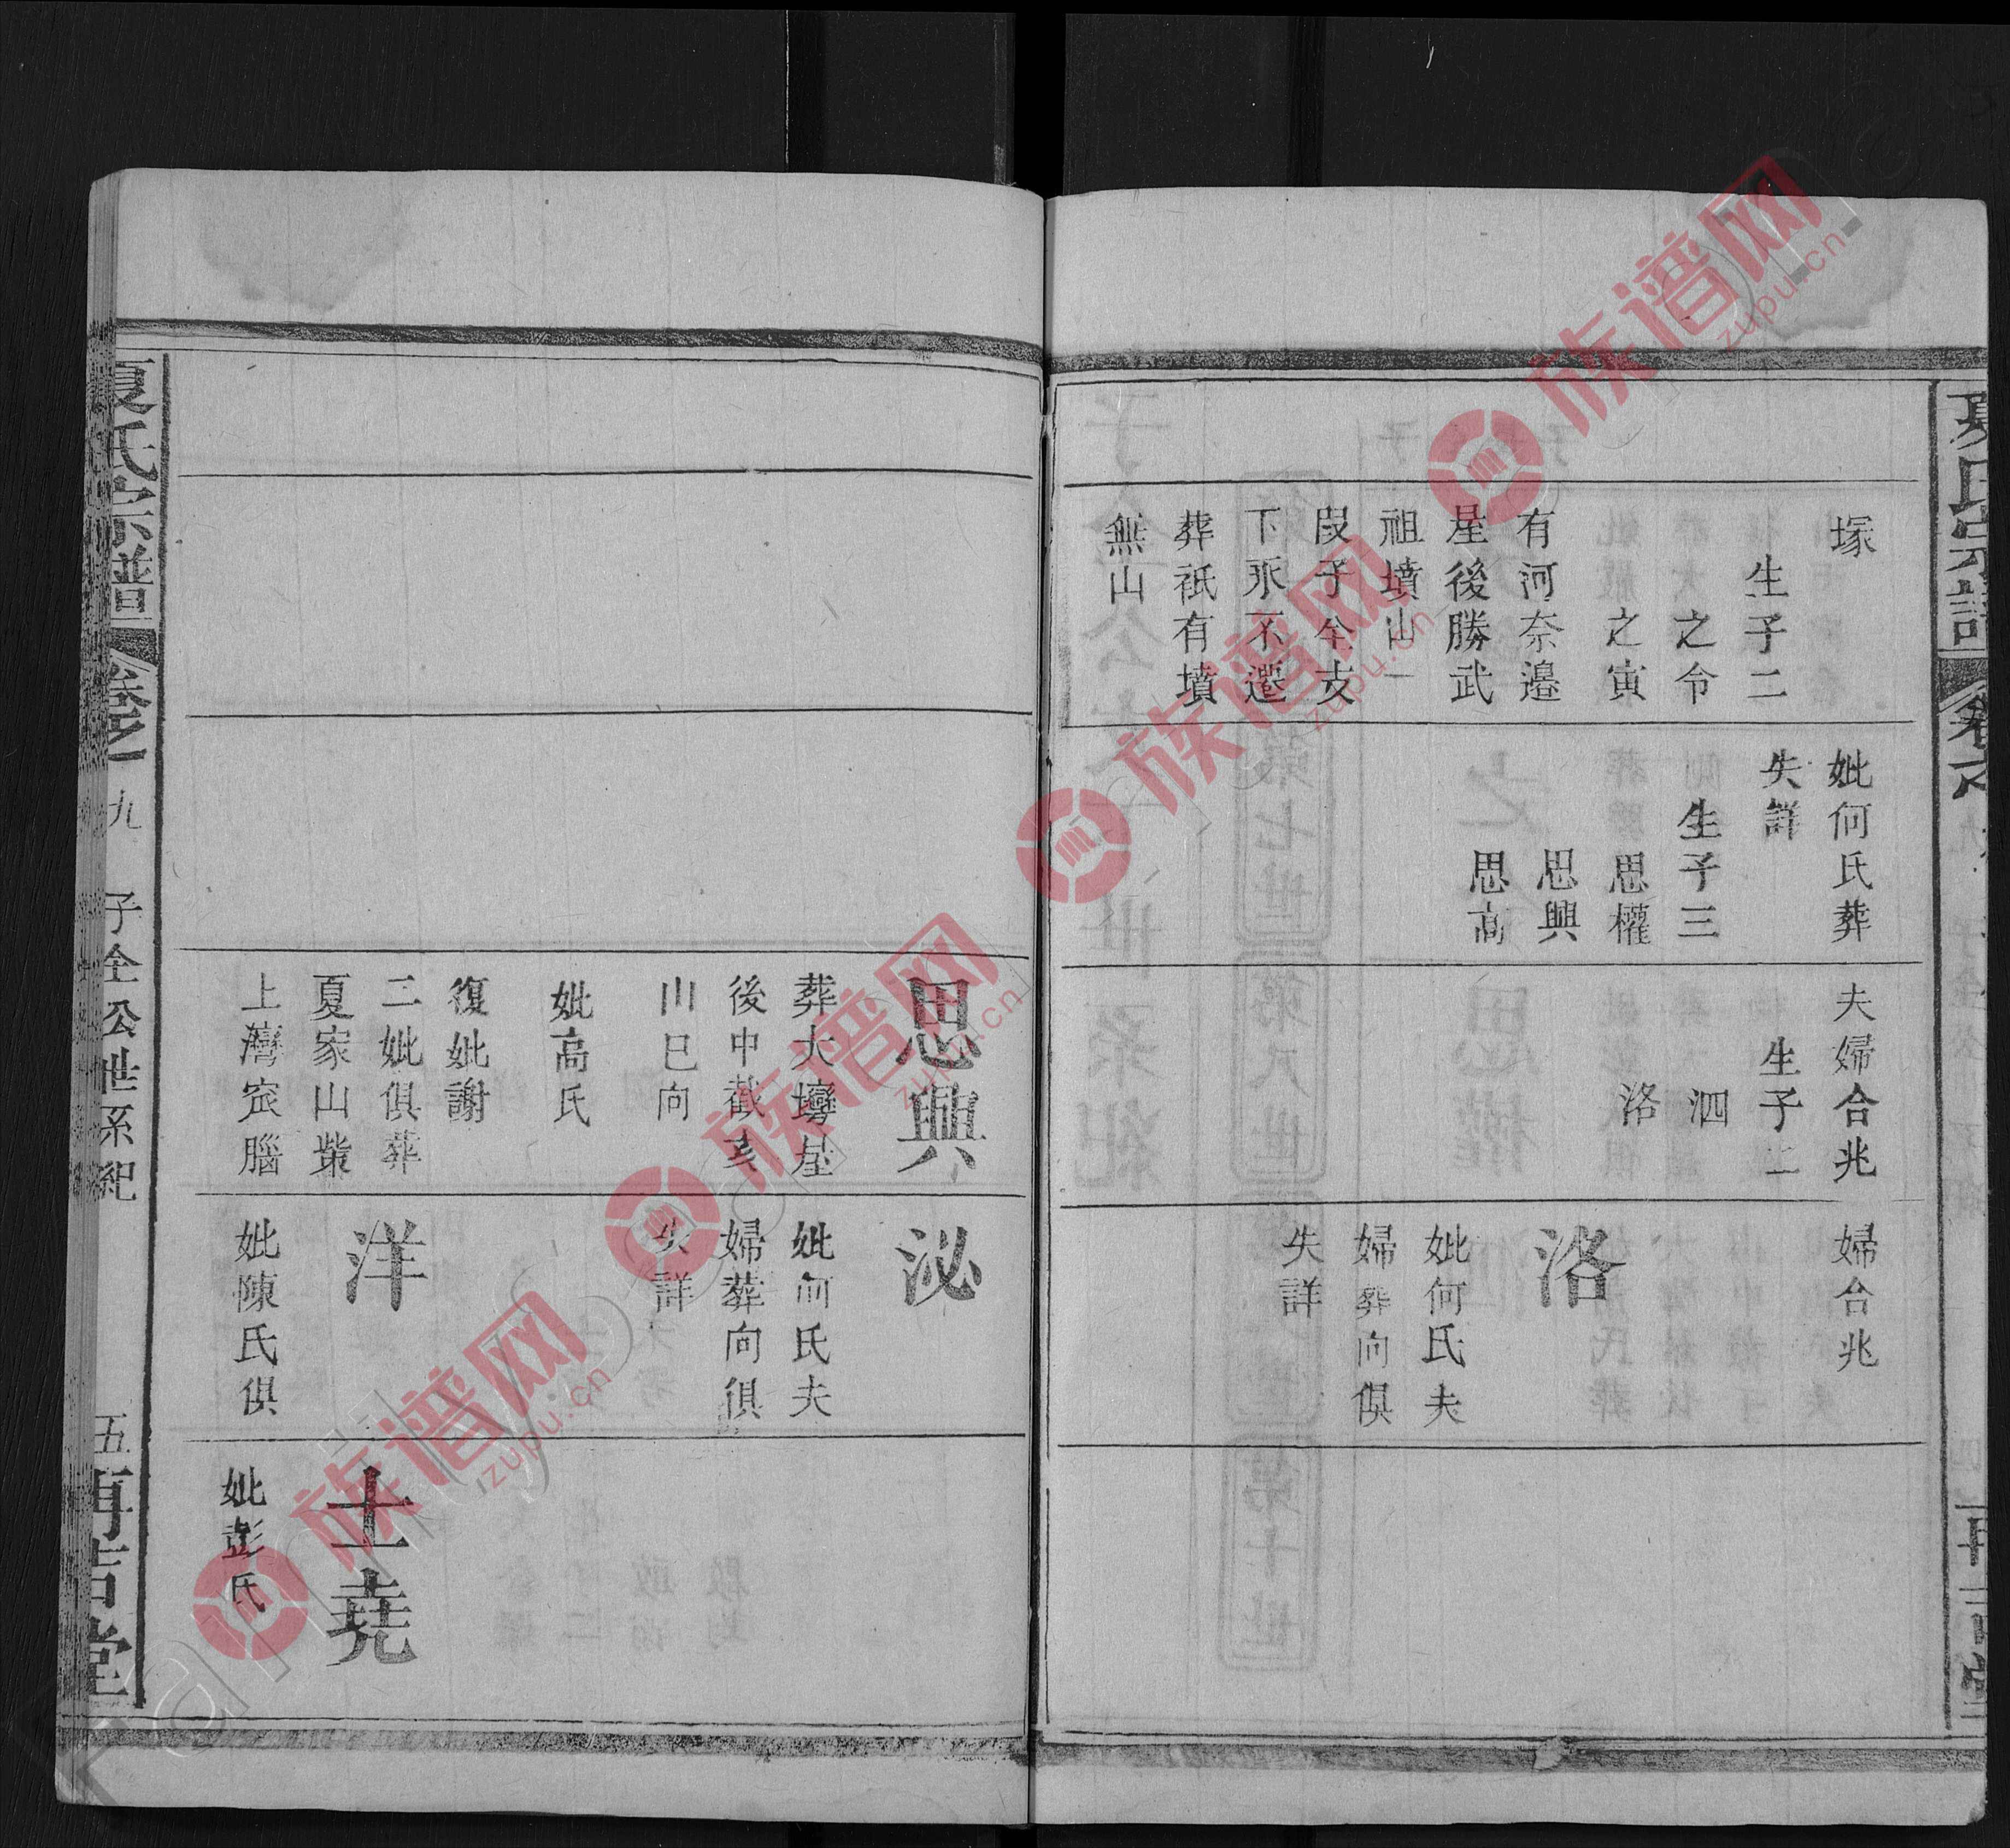 塚
生子二
之令
之寅
有河奈邉
星後勝武
祖墳山一
叚子全支
下永不遷
葬祇有墳
無山
妣何氏葬
失詳
生子三
思權
思興
思高
夫婦合兆
生子二
泗
洛
婦合兆
洛
妣何氏夫
婦葬向俱
失詳
夏氏宗譜
卷之一
九
子全公世系紀
五
再吉堂
思興
葬大塆星
後中截亥
山巳向
妣高氏
復妣謝
二妣俱葬
夏家山柴
上灣窊腦
泌
妣何氏夫
婦葬向俱
失詳
洋
妣陳氏俱
士堯
妣彭氏
族谱网
zupu.cn
族谱网
zupu.cn
族谱网
zupu.cn
族谱网
zupu.cn